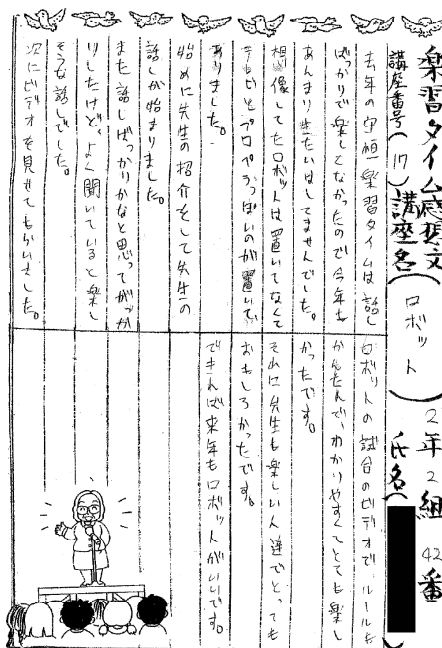 楽習タイム感想文
講座番号(17)講座名(ロボット)2年2組42番
氏名(
去年の宇恒楽習タイムは話し
ばっかりで楽しくなかったので今年も
あんまり期たいはしてませんでした。
想像してたロボットは置いてなくて
プロペラっぽいのが置いて
ありました。
始めに先生の紹介をして先生の
話しが始まりました。
また話しばっかりかなと思ってがっか
りしたけど、よく聞いていると楽し
そうな話しでした。
次にビデオを見せてもらいました。
ロボットの試合のビデオで、ルールも
かんたんで、わかりやすくてとても楽し
かったです。
それに先生も楽しい人達でとっても
おもしろかったです。
できれば来年もロボットがいいです。